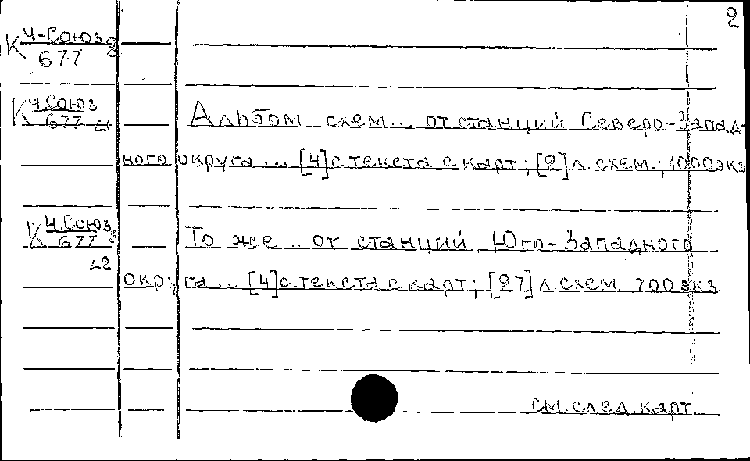 2
К Ч-Союз
677
К Ч.Союз
677
Альбом схем... от станций Северо-Запад-
ного округа... [4] с текста с карт; [9] л. схем.; 1000 экз
К Ч.Союз
677
То же .. от станций Юго-Западного
L2
округа... [4] с текста с карт; [27] л схем 700 экз
см. след карт.